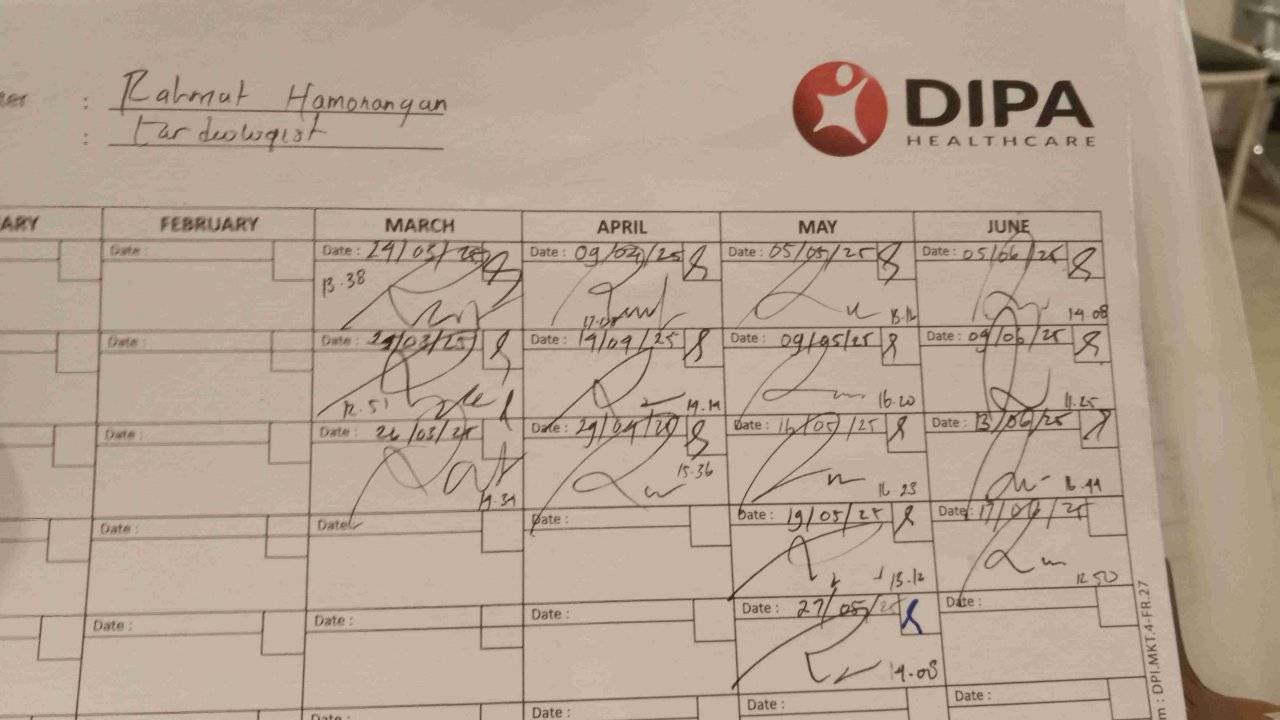 ter : Rahmat Hamonangan
: Cardiologist
DIPA
HEALTHCARE
ARY FEBRUARY MARCH APRIL MAY JUNE
Date : Date : 24/03/25 Date : 09/04/25 Date : 05/05/25 Date : 05/06/25
13.38 13.12 14.08
Date : Date : /03/25 Date : 14/04/25 Date : 09/05/25 Date : 09/06/25
12.51 14.14 16.20 11.25
Date : Date : 26/03/25 Date : 29/04/25 Date : 16/05/25 Date : 13/06/25
14.34 15.36 16.23 16.44
Date : Date Date : Date : 19/05/25 Date : 17/06/25
13.12 12.50
Date : Date : Date : Date : 27/05/25 Date :
14.08
Date : Date : Date : Date :
m : DPI.MKT.4-FR.27